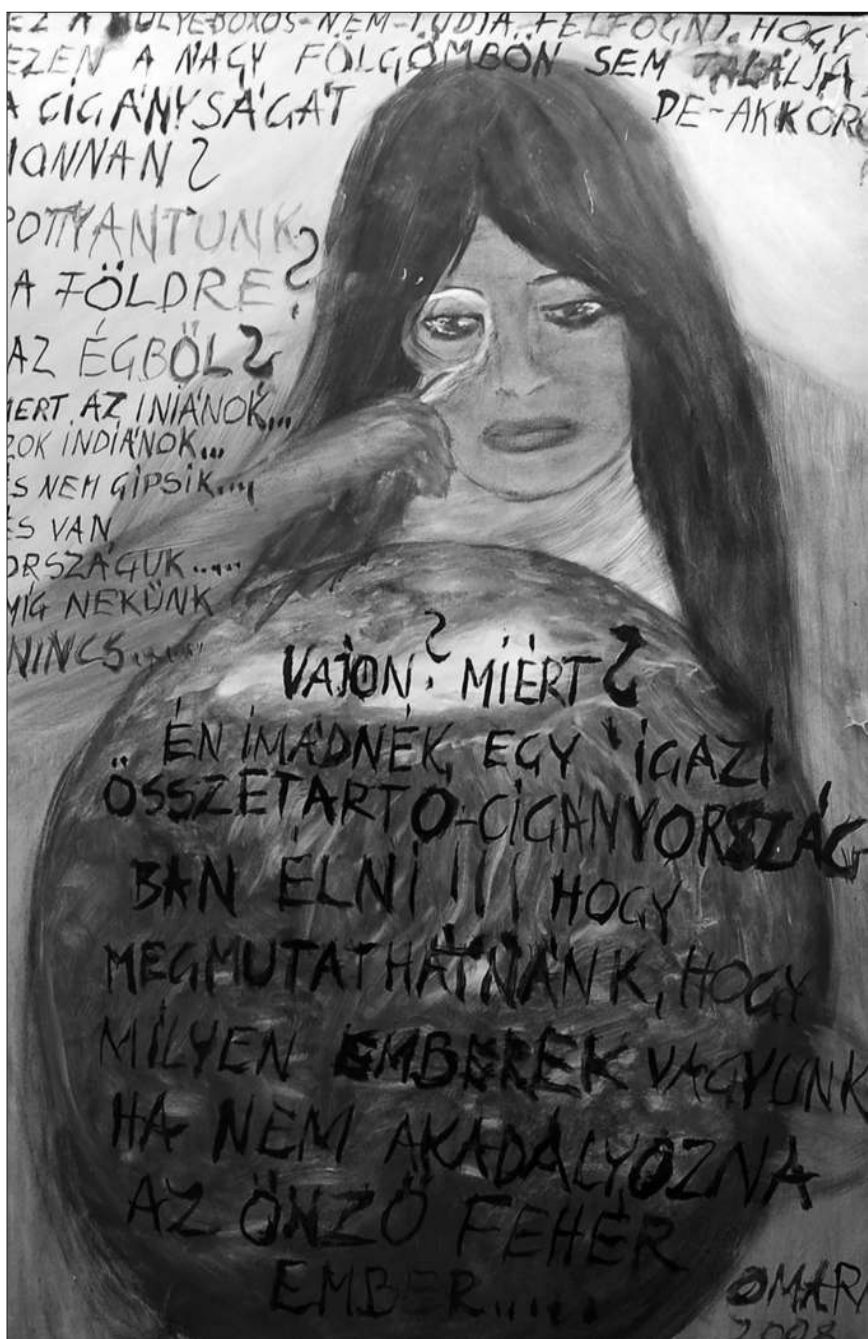 EZ A HÜLYE-BOXOS-NEM-TUDJA-FELFOGNI. HOGY
EZEN A NAGY FÖLGÖMBÖN SEM TALÁLJA
A CIGÁNYSÁGÁT DE-AKKOR
HONNAN?
POTTYANTUNK
A FÖLDRE?
AZ ÉGBŐL?
MERT AZ INIÁNOK...
AZOK INDIÁNOK...
ÉS NEM GIPSIK....
ÉS VAN
ORSZÁGUK.....
MÍG NEKÜNK
NINCS.....
VAJON? MIÉRT?
ÉN IMÁDNÉK, EGY IGAZI
ÖSSZETARTO-CIGÁNYORSZÁG-
BAN ÉLNI!!! HOGY
MEGMUTATHATNÁNK, HOGY
MILYEN EMBEREK VAGYUNK
HA NEM AKADÁLYOZNA
AZ ÖNZŐ FEHÉR
EMBER.....
OMARA